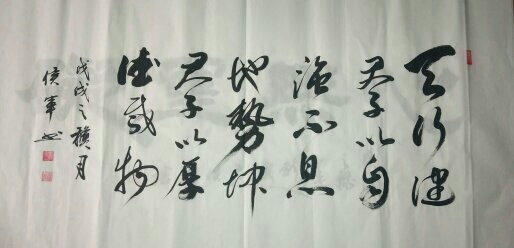 天行健
君子以自
強不息
地勢坤
君子以厚
德載物
戊戌之 月
侯軍书